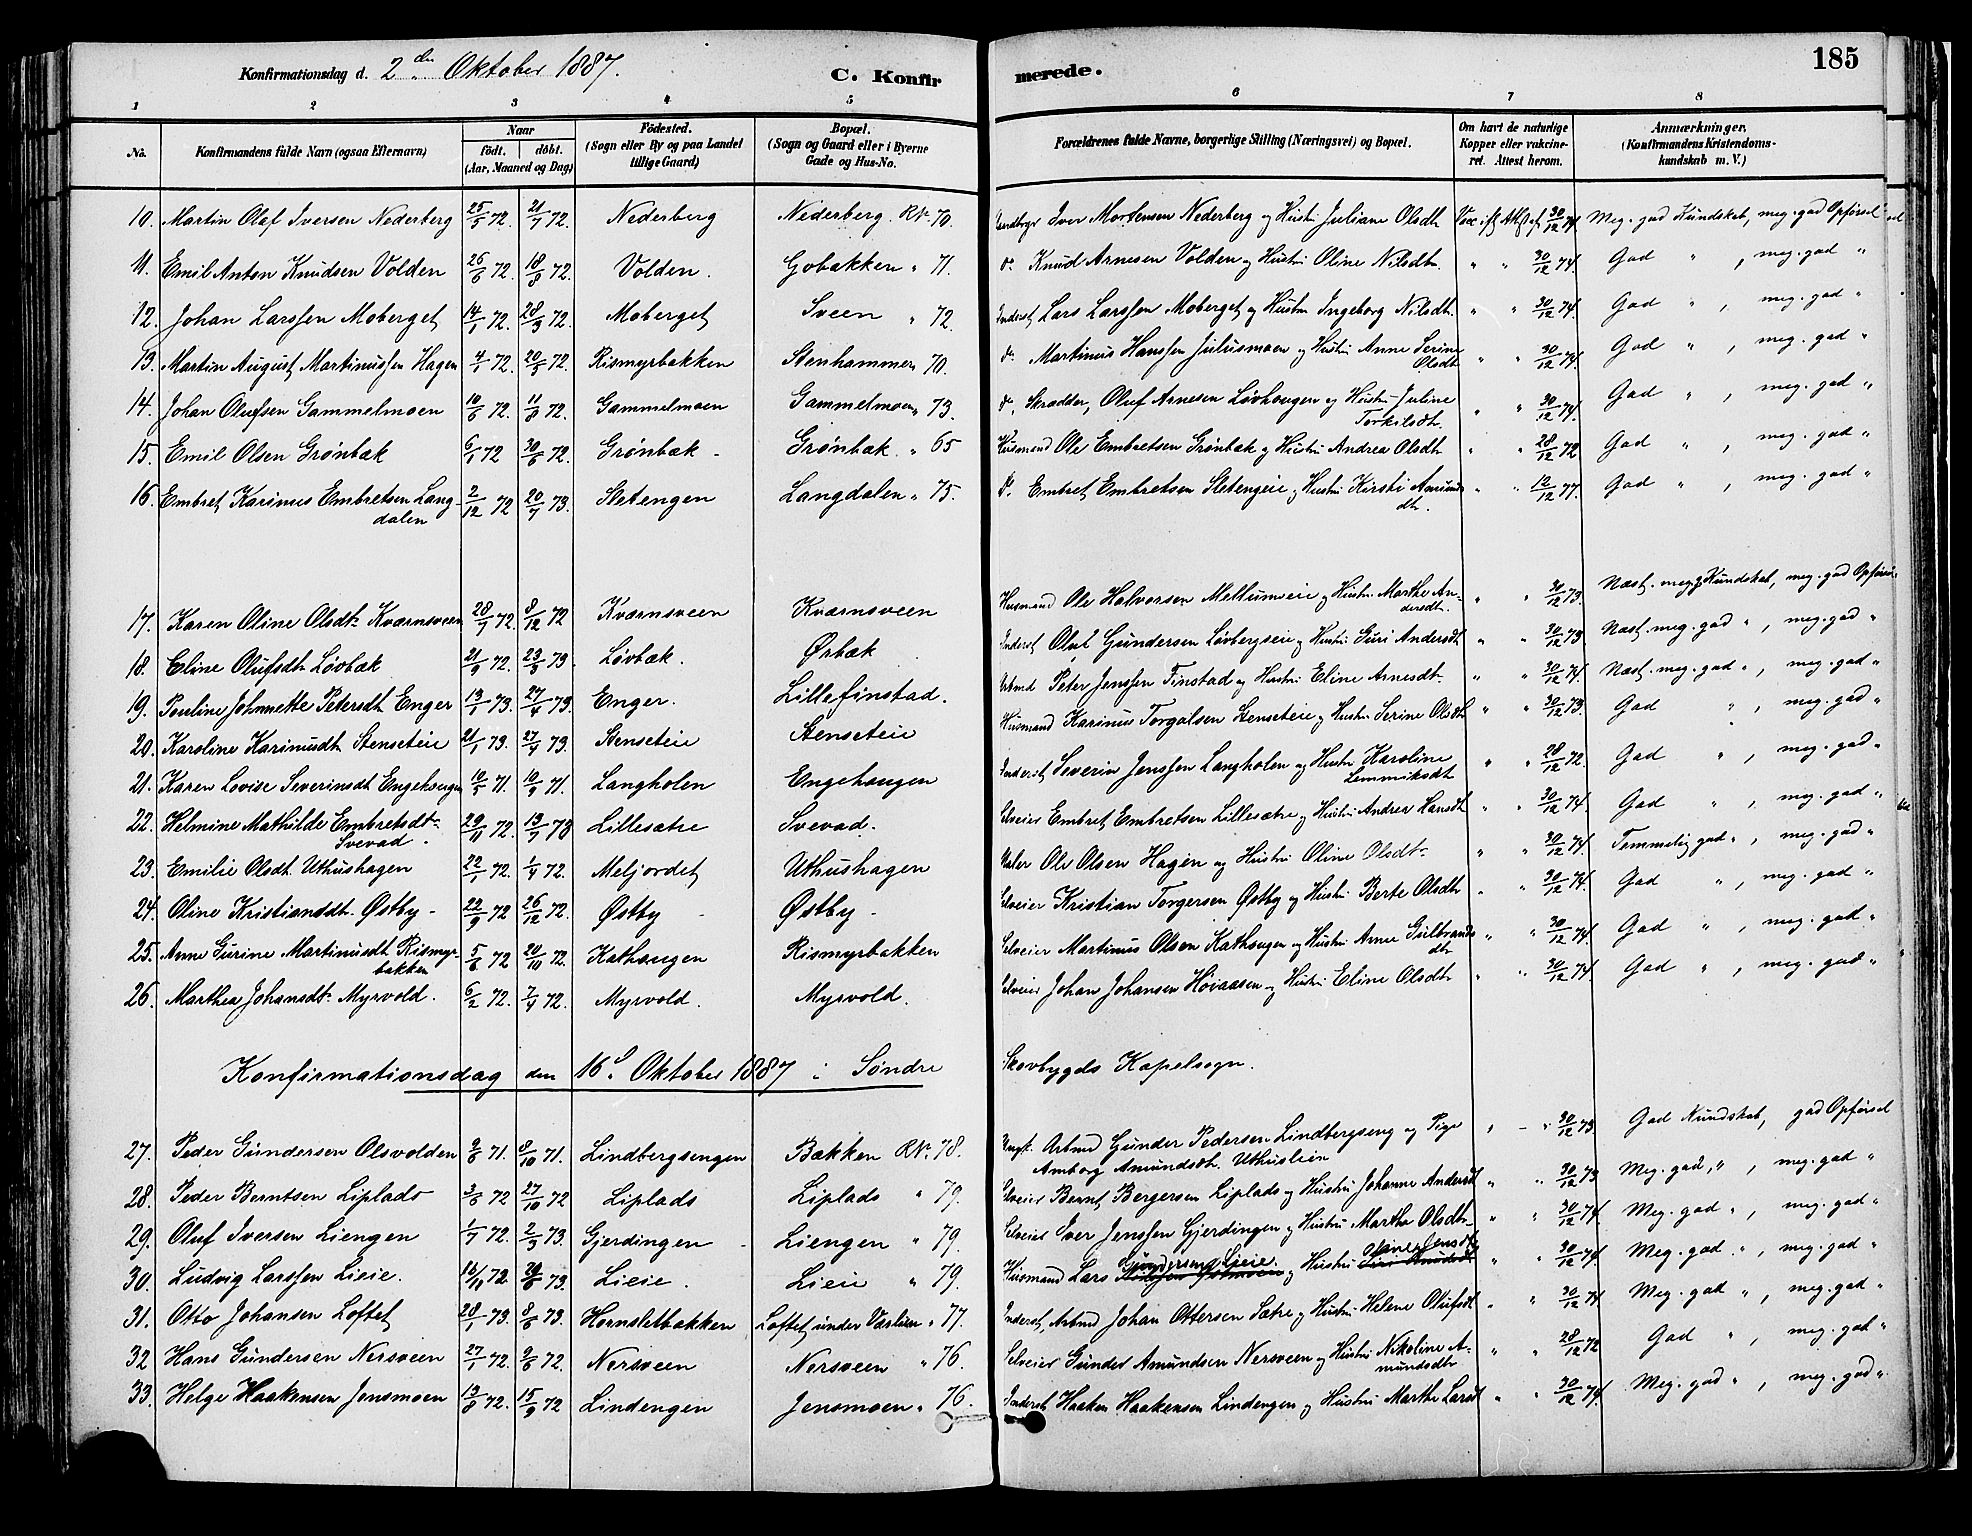 Konfirmationsdag d. 2den Oktober 1887. C. Konfirmerede. 185
1 2 3 4 5 6 7 8
No. Konfirmandens fulde Navn (ogsaa Efternavn) Naar født. døbt. (Aar, Maaned og Dag) Fødested. (Sogn eller By og paa Landet tillige Gaard) Bopæl. (Sogn og Gaard eller i Byerne Gade og Hus-No. Forældrenes fulde Navne, borgerlige Stilling (Næringsvei) og Bopæl. Om havt de naturlige Kopper eller vaccineret. Attest herom. Anmærkninger. (Konfirmandens Kristendomskundskab m. V.)
10. Martin Olaf Iversen Nederberg 25/5 72. 21/7 72. Nederberg Nederberg. RN. 70. Iver Mortensen Nederberg og Hustr. Juliane Olsdtr. 30/12 74 Meg. god Kundskab, meg. god Opførsel
11. Emil Anton Knudsen Volden 26/6 72. 18/8 72. Volden. Gobakken " 71. do. Knud Arnesen Volden og Hustru Oline Nilsdtr. " " 30/12 74. God " , meg. god "
12. Johan Larssen Moberget 14/1 72. 28/3 72. Moberget Sveen " 72. Inderst Lars Larssen Moberget og Hustru Ingeborg Nilsdtr. " " 30/12 74. God " , meg. god "
13. Martin August Martinussen Hagen 4/1 72. 20/5 72. Rismyrbakken Stenhammer 70. do. Martinus Hanssen Julusmoen og Hustru Anne Serine Olsdtr " " 30/12 74. God " , meg. god "
14. Johan Olufsen Gammelmoen 10/6 72. 11/8 72. Gammelmoen Gammelmoen " 73. do. Skrædder, Oluf Arnesen Løvhougen og Hustru Juline Torkilsdtr. " " 30/12 74. God " , meg. god "
15. Emil Olsen Grønbæk 6/1 72 30/6 72. Grønbæk - Grønbæk. " 65 Husmand Ole Embretsen Grønbæk og Hustru Andrea Olsdtr " " 28/12 72 God " , meg. god "
16. Embret Karinus Embretsen Langdalen 2/12 72 20/7 73. Sletengen Langdalen " 75. do. Embret Embretsen Sletengeie og Hustru Kirsti Amundsdtr. " " 12/12 77. God " , meg. god "
17. Karen Oline Olsdtr. Kværnsveen 28/7 72. 8/12 72 Kværnsveen Kværnsveen Husmand Ole Halvorsen Mellumeie og Hustru Marthe Andersdtr. " " 30/12 73. Næst. meg. g. Kundskab, meg. god Opførs.
18. Eline Olufsdtr Løvbæk 21/9 72. 23/3 73. Løvbæk. Ørbæk Inderst Oluf Gundersen Løvbergseie og Hustru Guri Andersdtr " " 30/12 73 Næst. meg. god " , meg. god "
19. Pouline Johnnette Petersdtr Enger 13/1 73. 27/4 73. Enger. Lillefinstad. Arbmd Peter Jenssen Finstad og Hustru Eline Arnesdtr. " " 30/12 74. Næst. meg. god " , meg. god "
20. Karoline Karinusdtr. Stenseteie 21/1 73. 27/4 73. Stenseteie Stenseteie Husmand Karinus Torgalsen Stenseteie og Hustru Serine Olsdtr " " 30/12 73. God " , meg. god "
21. Karen Lovise Severinsdtr Engehougen 10/5 71. 10/9 71. Langholen Engehougen Inderst Severin Jenssen Langholen og Hustru Karoline Lemmiksdtr " " 28/12 72. God " , meg. god "
22. Helmine Mathilde Embretsdtr. Svevad. 29/11 72. 13/7 73 Lillesætre Svevad. Selveier Embret Embretsen Lillesætre og Hustru Andrea Hansdtr " " 30/12 74. God " , meg. god "
23. Emilie Olsdtr. Uthushagen 22/1 72. 1/4 72. Meljordet Uthushagen Ole Olsen Hagen og Hustru Oline Olsdtr. " " 30/12 74. Temmelig god " , meg. god "
24. Oline Kristiansdtr. Østby - 22/9 72 26/12 72. Østby - Østby - Selveier Kristian Torgersen Østby og Hustru Berte Olsdtr " " 30/12 74. God " , meg. god "
25. Anne Gurine Martinusdtr Rismyrbakken 5/6 72 20/10 72. Kathougen Rismyrbakken Selveier Martinus Olsen Kathougen og Hustru Anne Gulbrandsdtr " " 30/12 74. God " , meg. god "
26. Marthea Johansdtr. Myrvold. 6/2 72. 7/4 72. Myrvold. Myrvold. Selveier Johan Johansen Høiaasen og Hustru Eline Olsdtr " " 30/12 74 God " , meg. god "
Konfirmationsdag den 16d. Oktober 1887 i Søndre Skovbygds Kapelsogn.
27. Peder Gundersen Olsvolden 9/6 71. 8/10 71. Lindbergsengen Bakken RN. 78. Ungk. Arbmd Gunder Pedersen Lindbergseng og Pige Amborg Amundsdtr. Uthuslein " - " 30/12 73 God Kundskab, god Opførsel
28. Peder Berntsen Liplads 3/8 72 27/10 72 Liplads Liplads " 79. Selveier Bernt Bergersen Liplads og Hustru Johanne Andersdtr " " 30/12 73 Meg. god, " , meg. god "
29. Oluf Iversen Liengen 1/7 72. 2/3 73. Gjerdingen - Liengen " 79. Selveier Iver Jenssen Gjerdingen og Hustru Marthe Olsdtr. " " 30/12 74. Meg. god " , meg. god "
30. Ludvig Larssen Lieie. 16/11 72. 29/6 73. Lieie. Lieie " 79. Husmand Lars Gundersen Lieie. og Hustru Oline Jensdtr " " 30/12 74. Meg. god " , meg. god "
31. Otto Johansen Loftet 28/1 73. 8/6 73. Hornsletbakken Loftet under Værlien " 77. Inderst, Arbmd Johan Ottersen Sætre og Hustru Helene Olufsdtr " " 30/12 74 Meg. god " , meg. god "
32 Hans Gundersen Nersveen 27/1 72. 9/6 72. Nersveen Nersveen " 76. Selveier Gunder Amundsen Nersveen og Hustru Nikoline Amundsdtr " " 28/12 72 God " , meg. god "
33. Helge Haakensen Jensmoen 13/8 72. 15/9 72 Lindengen Jensmoen " 76. Inderst Haaken Haakensen Lindengen og Hustru Marthe Larsd. " " 30/12 74. Meg. god " , meg. god "